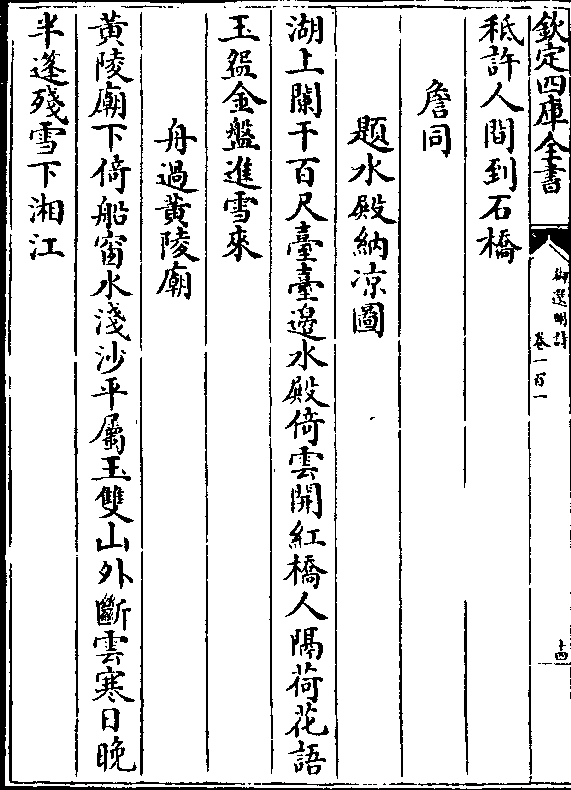 欽定四庫全書
御選明詩
卷一百一
十四
秪許人間到石橋
詹同
題水殿納凉圖
湖上闌干百尺臺臺邉水殿倚雲開紅橋人隔荷花語
玉盌金盤進雪來
舟過黄陵廟
黄陵廟下倚船窗水淺沙平屬玉雙山外斷雲寒日晚
半蓬殘雪下湘江